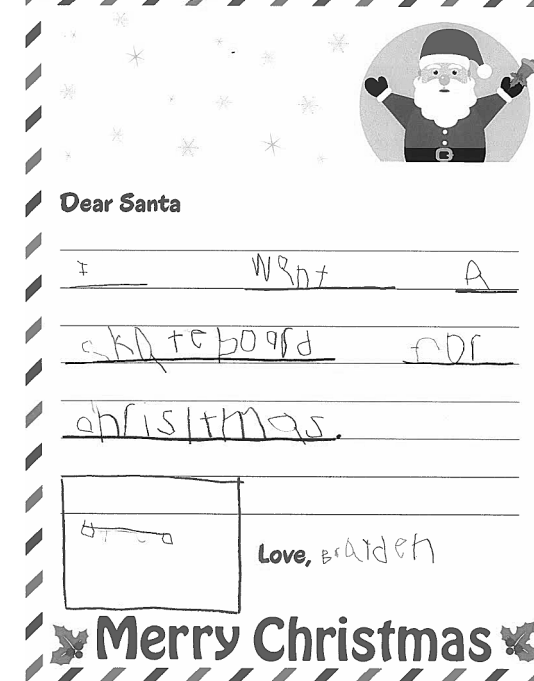 Dear Santa
I want A
skateboard for
christmas.
Love, Braiden
Merry Christmas